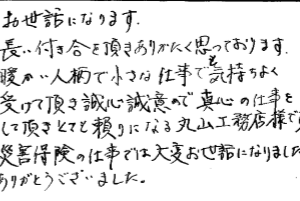 お世話になります.
長い付き合を頂きありがたく思っております.
暖かい人柄で小さな仕事でも気持ちよく
受けて頂き誠心誠意ので真心の仕事を
して頂きとても頼りになる丸山工務店様です
災害保険の仕事では大変お世話になりました
ありがとうございました.